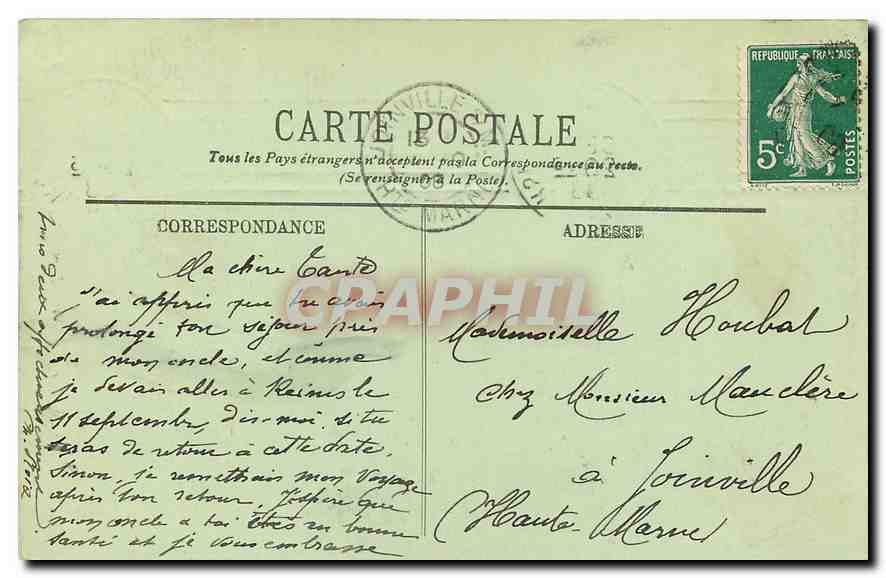 REPUBLIQUE FRANÇAISE
5c
POSTES
JOINVILLE
Hte MARNE
CARTE POSTALE
Tous les Pays étrangers n'acceptent pas la Correspondance au recto.
(Se renseigner à la Poste).
CORRESPONDANCE
Ma chère Tante
J'ai appris que tu avais
prolongé ton séjour près
de mon oncle, et comme
je devais aller à Reims le
11 septembre, dis-moi si tu
seras de retour à cette date.
Sinon, je remettrais mon voyage
après ton retour. J'espère que
mon oncle & toi êtes en bonne
santé et je vous embrasse
tous deux affectueusement
ADRESSE
Mademoiselle Houbat
chez Monsieur Mauclère
à Joinville
Haute-Marne
CPAPHIL